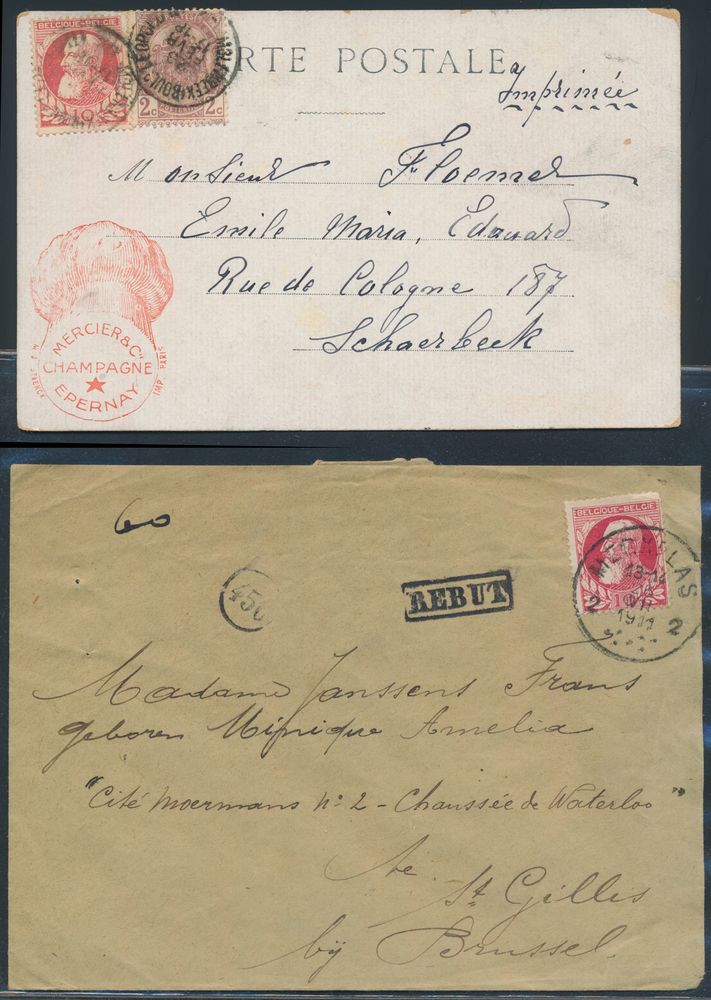 BELGIQUE-BELGIE
10
2c 2c
CARTE POSTALE
Imprimée
Monsieur Floemer
Emile Maria, Edouard
Rue de Cologne 187
Schaerbeek
MERCIER & Cie
CHAMPAGNE
EPERNAY
IMP. PARIS
60
456
REBUT
BELGIQUE-BELGIE
10
13-14
VII
1911
2 2
Madame Janssens Frans
geboren Minique Amelia
"Cité Moermans No: 2 - Chaussée de Waterloo"
te
St Gillis
bÿ Brussel.